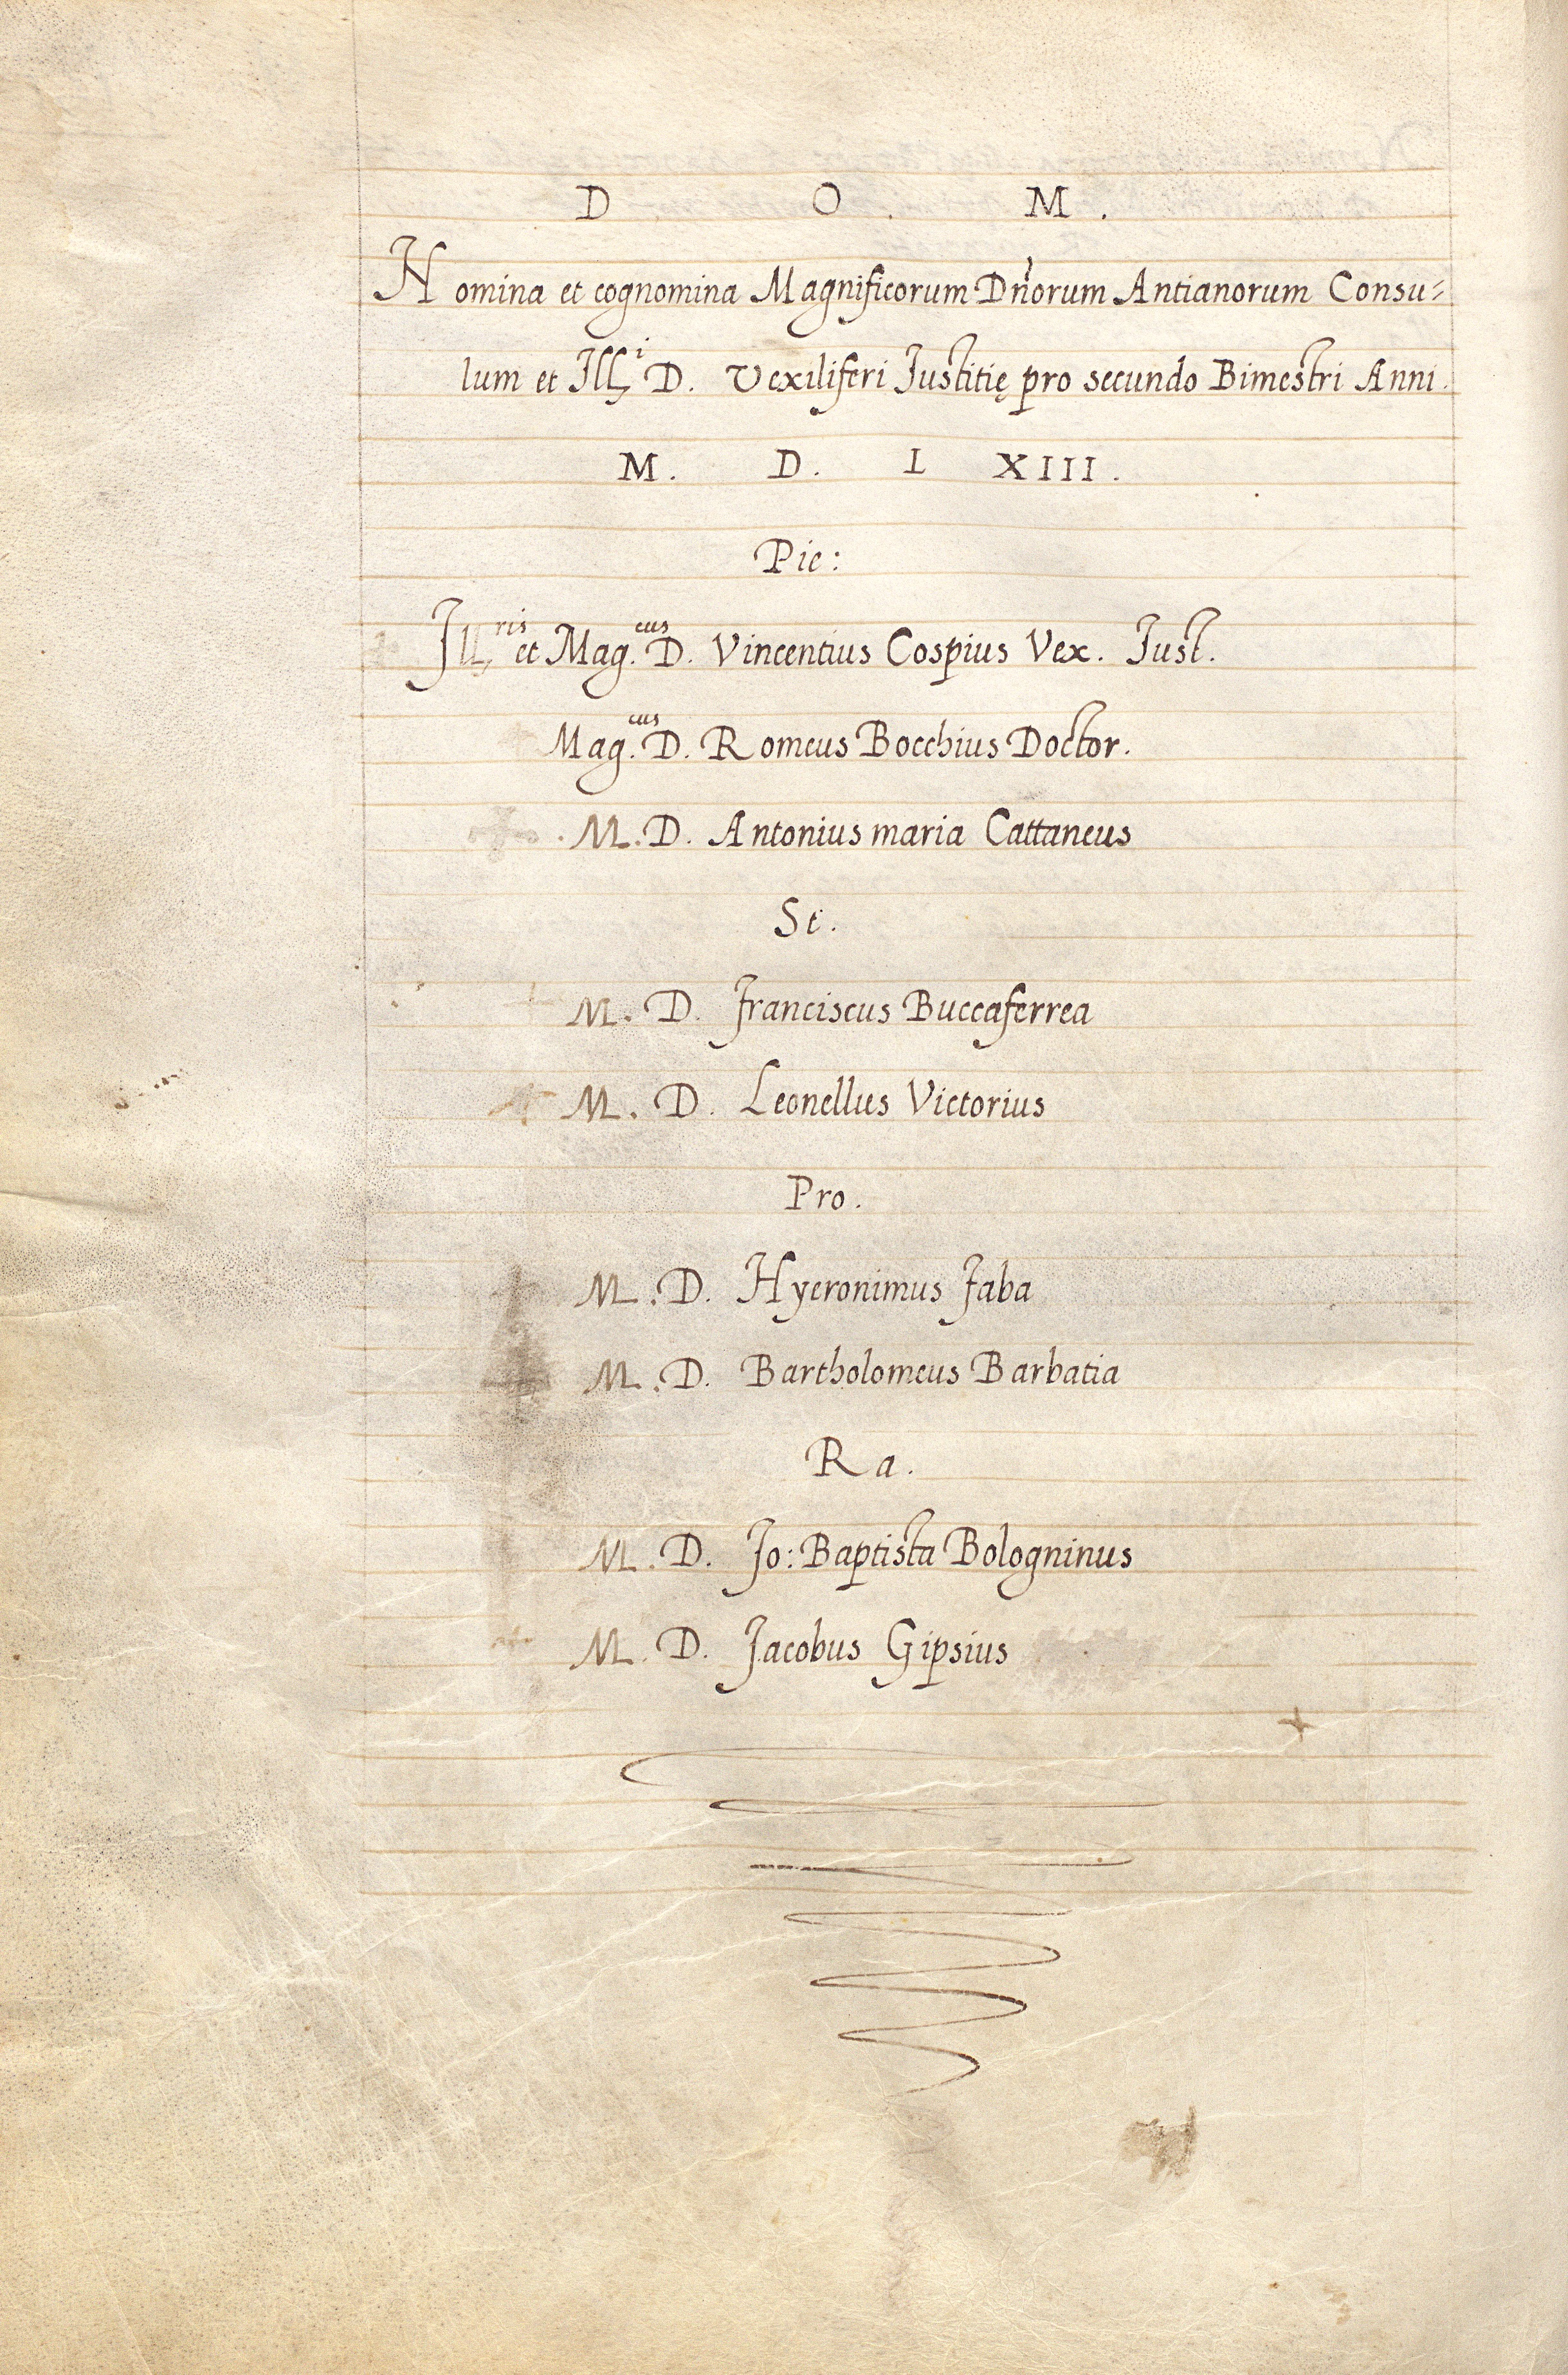 D O . M .
Nomina et cognomina Magnificorum Dñorum Antianorum Consu=
lum et Ill^i D. Vexiliferi Justitię pro secundo Bimestri Anni.
M. D. L XIII.
Pie:
Ill^ris et Mag.^cus D. Vincentius Cospius Vex. Just.
Mag.^cus D. Romeus Bocchius Doctor.
M. D. Antonius maria Cattaneus
St.
M. D. Franciscus Buccaferrea
M. D. Leonellus Victorius
Pro.
M. D. Hyeronimus Faba
M. D. Bartholomeus Barbatia
Ra.
M. D. Jo: Baptista Bologninus
M. D. Jacobus Gipsius